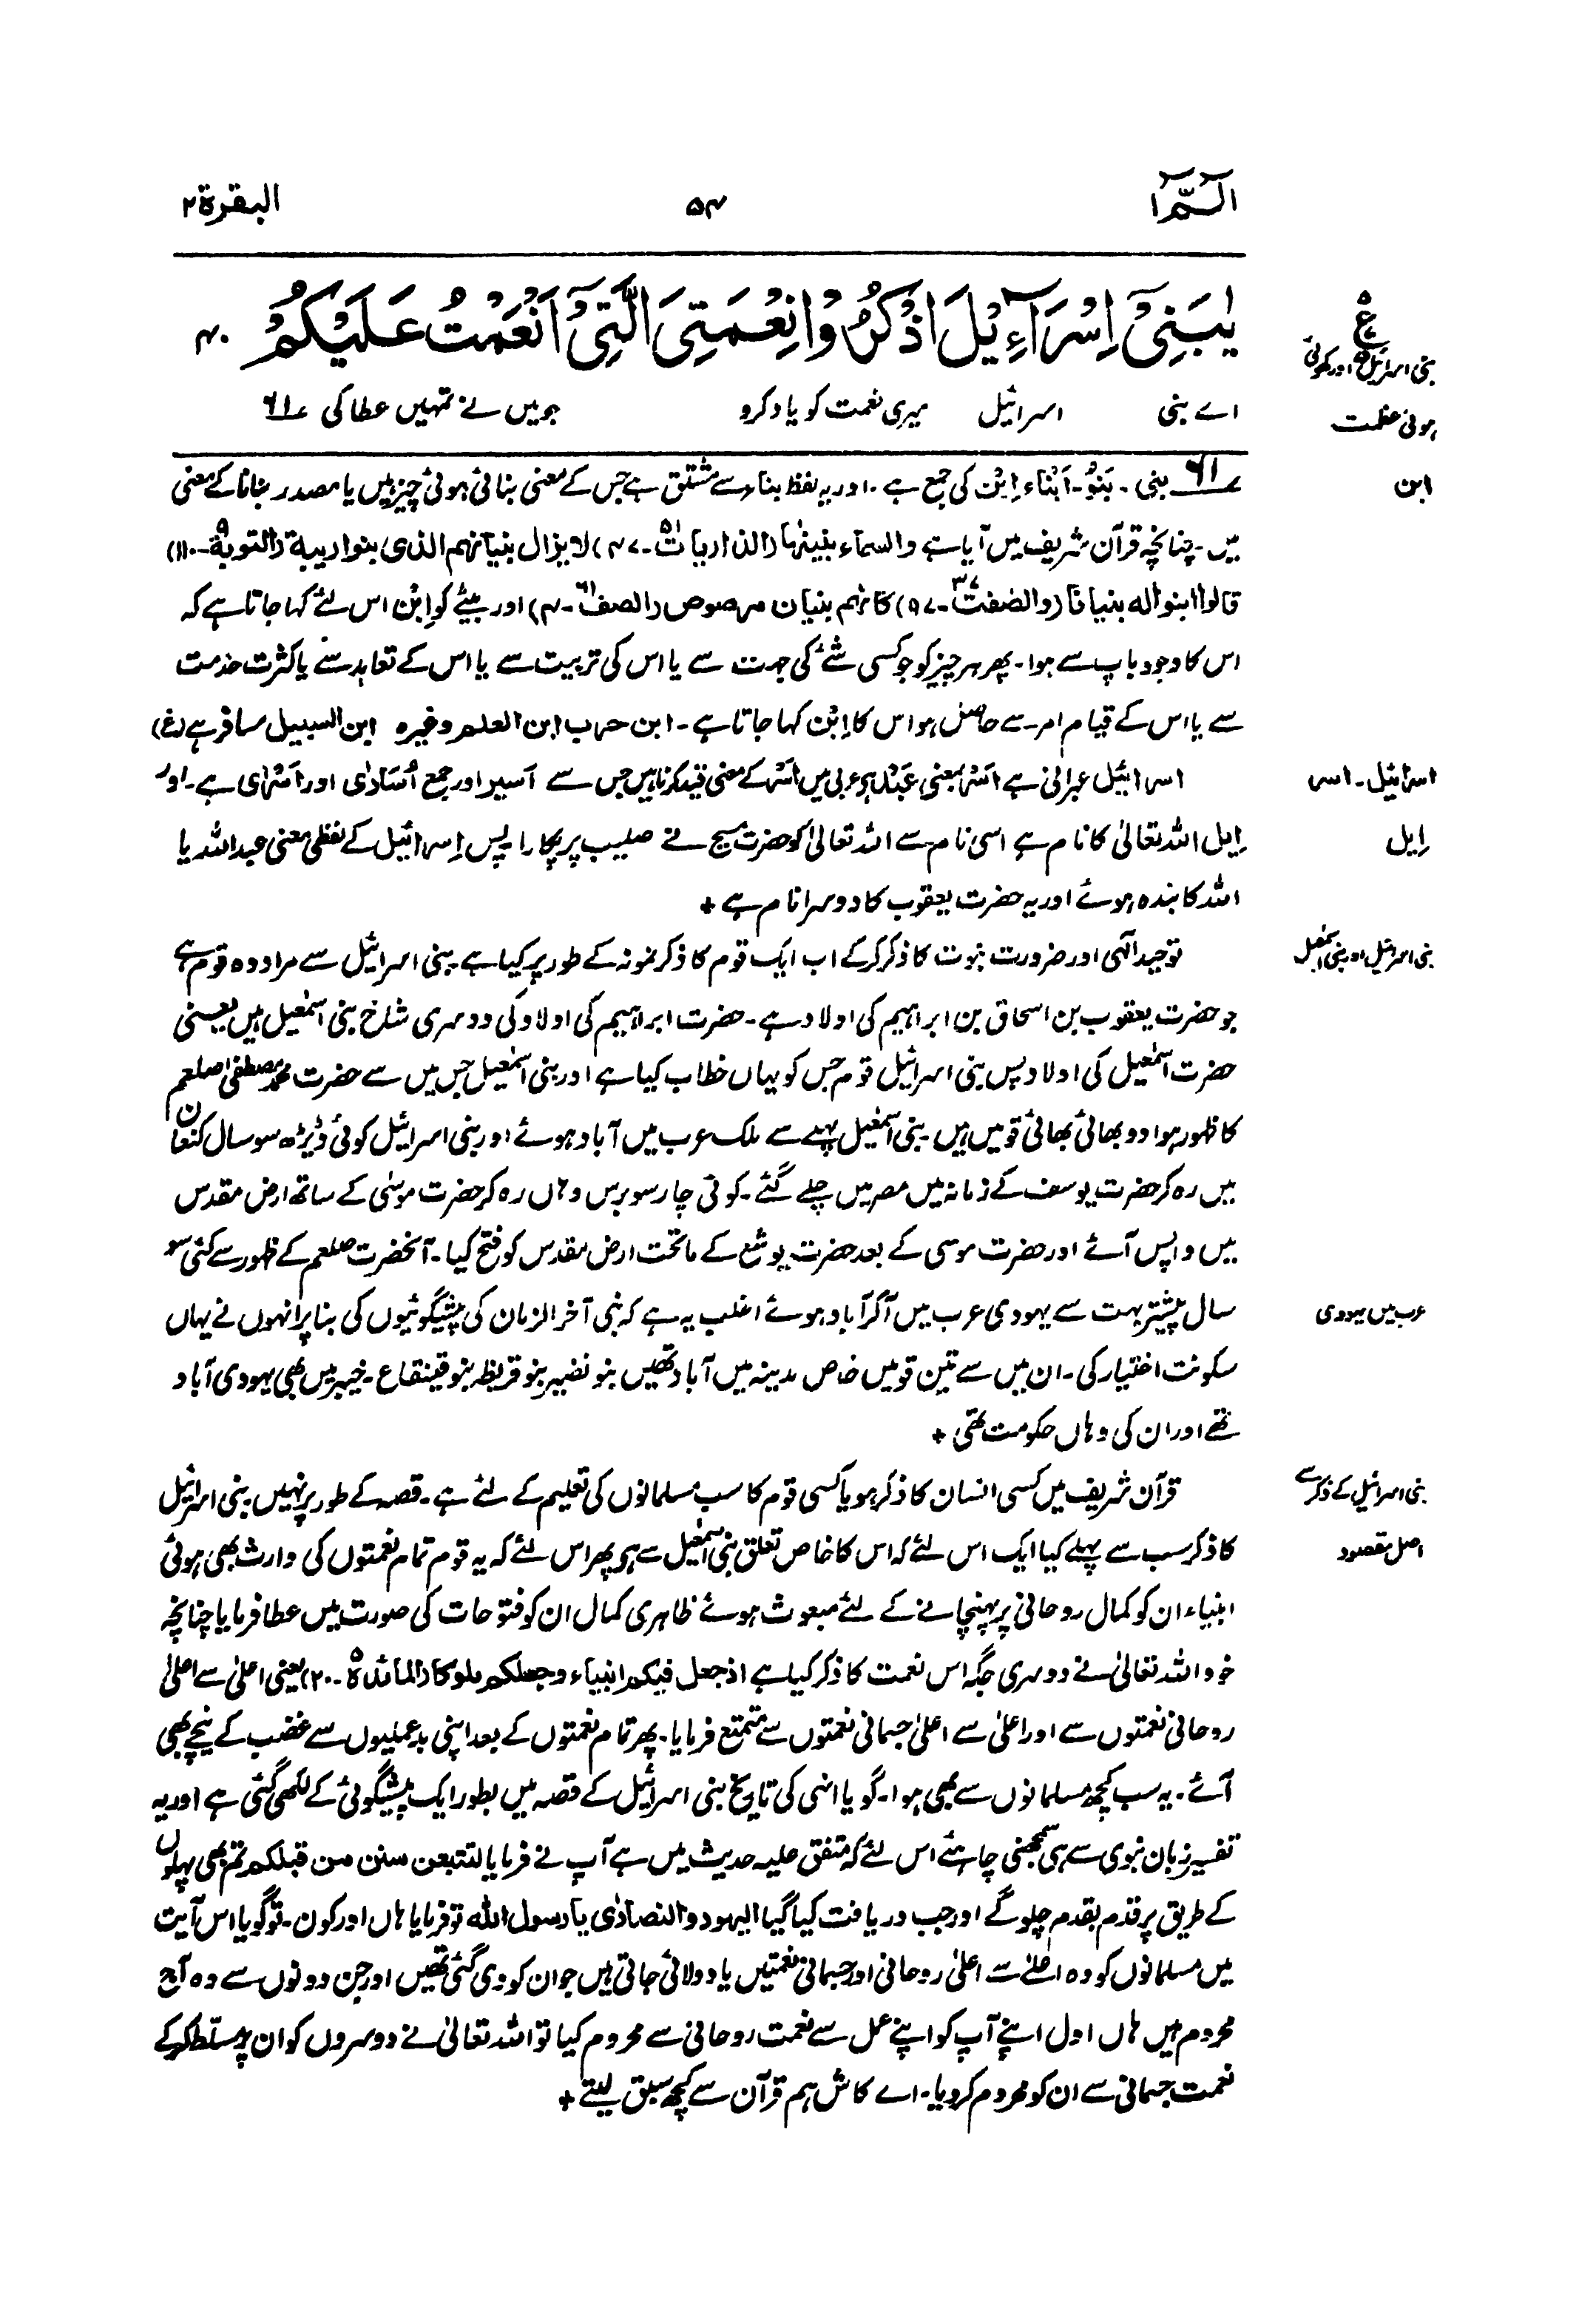 الٓمّٓ ۱
۵۴
البقرۃ ۲
یٰبَنِیْٓ اِسْرَآءِیْلَ اذْکُرُوْا نِعْمَتِیَ الَّتِیْٓ اَنْعَمْتُ عَلَیْکُمْ ۴۰
ع ۵
بنی اسرائیل اور کھوئی
ہوئی عظمت
اے بنی اسرائیل میری نعمت کو یاد کرو جو میں نے تمہیں عطا کی ۶۱
ابن
۶۱ بنی ۔ بَنُوْ ۔ اَبْنَاء اِبْن کی جمع ہے ۔ اور یہ لفظ بناء سے مشتق ہے جس کے معنی بنائی ہوئی چیز ہیں یا مصدر بنانا کے معنی
ہیں ۔ چنانچہ قرآن شریف میں آیا ہے والسماء بنینٰہا (الذاریات ۵۱ ۔ ۴۷) لا یزال بنیانہم الذی بنوا ریبۃ (التوبۃ ۹ ۔ ۱۱۰)
قالوا ابنوا لہ بنیانا (والصٰفٰت ۳۷ ۔ ۹۷) کانہم بنیان مرصوص (الصف ۶۱ ۔ ۴) اور بیٹے کو اِبْن اس لئے کہا جاتا ہے کہ
اس کا وجود باپ سے ہوا ۔ پھر ہر چیز کو جو کسی شئے کی جہت سے یا اس کی تربیت سے یا اس کے تعاہد سے یا کثرت خدمت
سے یا اس کے قیام امر سے حاصل ہو اس کا اِبْن کہا جاتا ہے ۔ ابن حرب ابن العلم وغیرہ ابن السبیل مسافر ہے (غ)
اسرائیل ۔ اسر
اسرائیل عبرانی ہے اَسْر بمعنی عَبْد ہے عربی میں اَسْر کے معنی قید کرنا ہیں جس سے اَسیر اور جمع اُسَارٰی اور اَسْرٰی ہے ۔ اور
اِیل
اِیل اللہ تعالیٰ کا نام ہے اسی نام سے اللہ تعالیٰ کو حضرت مسیح نے صلیب پر پکارا پس اِسرائیل کے لفظی معنی عبداللہ یا
اللہ کا بندہ ہوئے اور یہ حضرت یعقوب کا دوسرا نام ہے +
بنی اسرائیل اور بنی اسمٰعیل
توحید الٰہی اور ضرورت نبوت کا ذکر کرکے اب ایک قوم کا ذکر نمونہ کے طور پر کیا ہے بنی اسرائیل سے مراد وہ قوم ہے
جو حضرت یعقوب بن اسحاق بن ابراہیم کی اولاد ہے ۔ حضرت ابراہیم کی اولاد کی دوسری شاخ بنی اسمٰعیل ہیں یعنی
حضرت اسمٰعیل کی اولاد پس بنی اسرائیل قوم جس کو یہاں خطاب کیا ہے اور بنی اسمٰعیل جس میں سے حضرت محمد مصطفیٰ صلعم
کا ظہور ہوا دو بھائی بھائی قومیں ہیں ۔ بنی اسمٰعیل پہلے سے ملک عرب میں آباد ہوئے اور بنی اسرائیل کوئی ڈیڑھ سو سال کنعان
میں رہ کر حضرت یوسف کے زمانہ میں مصر میں چلے گئے ۔ کوئی چار سو برس وہاں رہ کر حضرت موسٰی کے ساتھ ارض مقدس
میں واپس آئے اور حضرت موسی کے بعد حضرت یوشع کے ماتحت ارض مقدس کو فتح کیا ۔ آنحضرت صلعم کے ظہور سے کئی سو
عرب میں یہودی
سال پیشتر بہت سے یہودی عرب میں آکر آباد ہوئے اغلب یہ ہے کہ نبی آخر الزمان کی پیشگوئیوں کی بنا پر انہوں نے یہاں
سکونت اختیار کی ۔ ان میں سے تین قومیں خاص مدینہ میں آباد تھیں بنو نضیر بنو قریظہ بنو قینقاع ۔ خیبر میں بھی یہودی آباد
تھے اور ان کی وہاں حکومت تھی +
بنی اسرائیل کے ذکر سے
قرآن شریف میں کسی انسان کا ذکر ہو یا کسی قوم کا سب مسلمانوں کی تعلیم کے لئے ہے ۔ قصہ کے طور پر نہیں بنی اسرائیل
اصل مقصود
کا ذکر سب سے پہلے کیا ایک اس لئے کہ اس کا خاص تعلق بنی اسمٰعیل سے ہے پھر اس لئے کہ یہ قوم تمام نعمتوں کی وارث بھی ہوئی
انبیاء ان کو کمال روحانی پر پہنچانے کے لئے مبعوث ہوئے ظاہری کمال ان کو فتوحات کی صورت میں عطا فرمایا چنانچہ
خود اللہ تعالیٰ نے دوسری جگہ اس نعمت کا ذکر کیا ہے اذ جعل فیکم انبیاء وجعلکم ملوکا (المائدۃ ۵ ۔ ۲۰) یعنی اعلیٰ سے اعلیٰ
روحانی نعمتوں سے اور اعلیٰ سے اعلیٰ جسمانی نعمتوں سے متمتع فرمایا ۔ پھر تمام نعمتوں کے بعد اپنی بدعملیوں سے غضب کے نیچے بھی
آئے ۔ یہ سب کچھ مسلمانوں سے بھی ہوا ۔ گویا انہی کی تاریخ بنی اسرائیل کے قصہ میں بطور ایک پیشگوئی کے لکھی گئی ہے اور یہ
تفسیر زبان نبوی سے ہی سمجھنی چاہئے اس لئے کہ متفق علیہ حدیث میں ہے آپ نے فرمایا لتتبعن سنن من قبلکم تم بھی پہلوں
کے طریق پر قدم بقدم چلو گے اور جب دریافت کیا گیا الیہود والنصارٰی یا رسول اللہ تو فرمایا ہاں اور کون ۔ تو گویا اس آیت
میں مسلمانوں کو وہ اعلیٰ سے اعلیٰ روحانی اور جسمانی نعمتیں یاد دلائی جاتی ہیں جو ان کو دی گئی تھیں اور جن دونوں سے وہ آج
محروم ہیں ہاں اول اپنے آپ کو اپنے عمل سے نعمت روحانی سے محروم کیا تو اللہ تعالیٰ نے دوسروں کو ان پر مسلّط کرکے
نعمت جسمانی سے ان کو محروم کر دیا ۔ اے کاش ہم قرآن سے کچھ سبق لیتے +